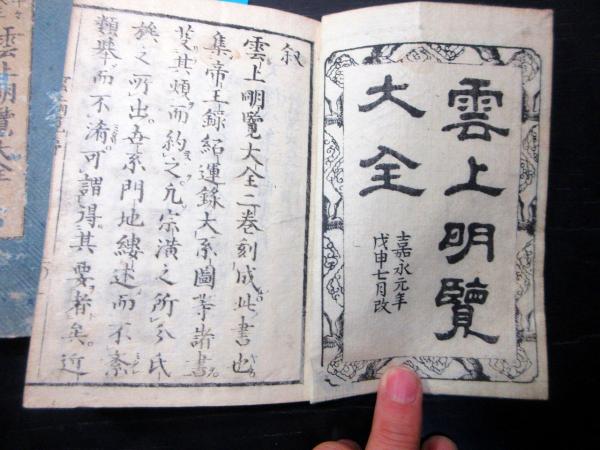 雲上明覽
大全
嘉永元年
戊申七月改
叙
雲上明覽大全二巻刻成此書也
集帝王録紹運録大系図等諸書
芟其煩而約之凢宗潢之所分氏
族之所出世系門地縷述而不紊
類举而不淆可謂得其要者矣近
雲上明覽大全